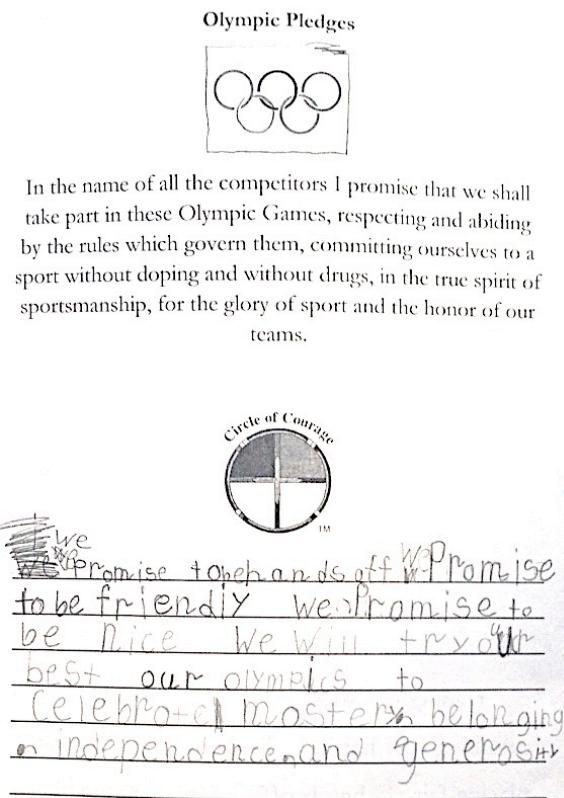 Olympic Pledges
In the name of all the competitors I promise that we shall
take part in these Olympic Games, respecting and abiding
by the rules which govern them, committing ourselves to a
sport without doping and without drugs, in the true spirit of
sportsmanship, for the glory of sport and the honor of our
teams.
Circle of Courage
TM
we
Promise tobehands off we Promise
to be friendly we Promise to
be nice We Will try our
best our olympics to
Celebrate mastery belonging
independence and generosity